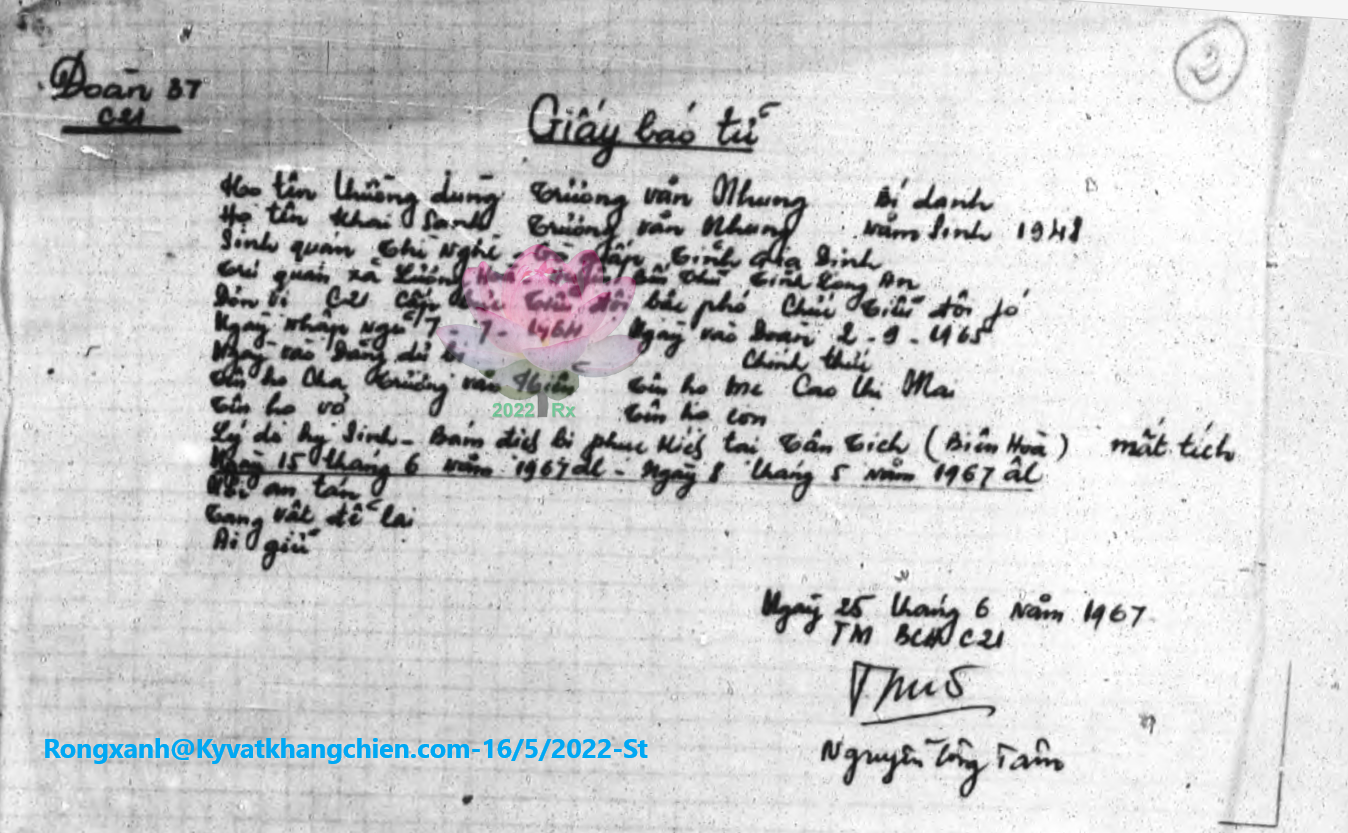 2
Đoàn 87
C21
Giấy báo tử
Họ tên thường dùng Trương văn Nhung Bí danh
Họ tên khai sanh Trương văn Nhung Năm sinh 1948
Sinh quán Thị Nghè - Gò Vấp Tỉnh Gia Định
Trú quán xã Lương Hoà Huyện Bến Thủ Tỉnh Long An
Đơn vị C21 Cấp bậc Tiểu đội bậc phó Chức Tiểu đội fó
Ngày nhập ngũ 7 - 7 - 1964 Ngày vào Đoàn 2 - 9 - 1965
Ngày vào Đảng dự bị Chính thức
Tên họ Cha Trương văn Tên họ mẹ Cao thị Mai
Tên họ vợ Tên họ con
Lý do hy sinh - Bám địch bị phục kích tại Tân Tịch (Biên Hoà) mất tích
Ngày 15 tháng 6 năm 1967 dl - Ngày 8 tháng 5 năm 1967 âl
Nơi an táng
Tang vật để lại
Ai giữ
Ngày 25 tháng 6 năm 1967
TM BCH C21
Nguyễn Công Tâm
2022 Rx
Rongxanh@Kyvatkhangchien.com-16/5/2022-St